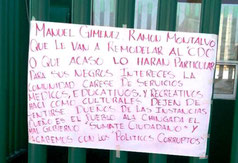 MANUEL GIMENEZ RAMON MONTALVO
QUE LE VAN A REMODELAR AL "CDC"
O QUE ACASO LO HARAN PARTICULAR
PARA SUS NEGROS INTERECES LA
COMUNIDAD CARESE DE SERVICIOS
MEDICOS, EDUCATIVOS, Y RECREATIVOS
HACI COMO CULTURALES DEJEN DE
SENTIRSE DUEÑOS DE LAS INSTANCIAS
DUEÑO ES EL PUEBLO ALS CHINGADA EL
MAL GOBIERNO SUMATE CIUDADANO Y
SAQUEMOS CON LOS POLITICOS CORRUPTOS